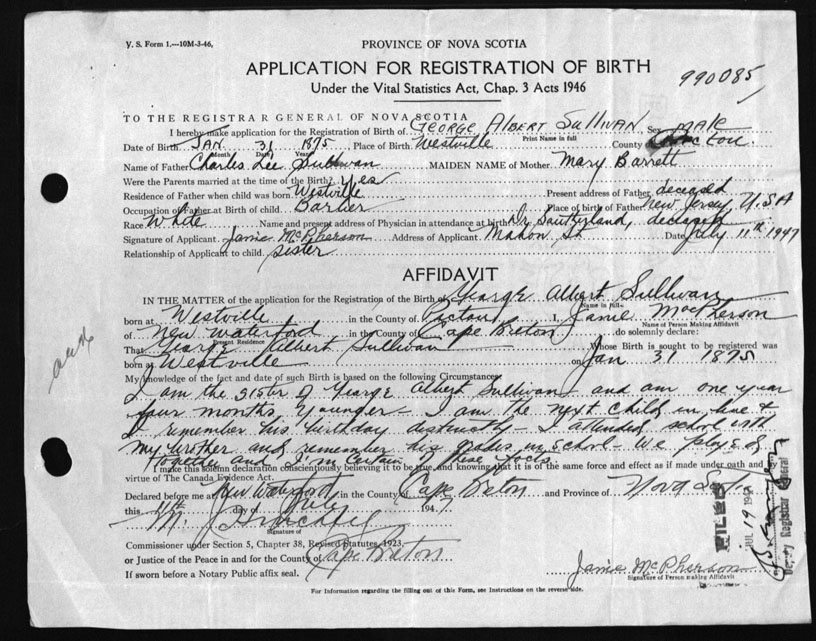 V. S. Form 1.—10M-3-46,
PROVINCE OF NOVA SCOTIA
APPLICATION FOR REGISTRATION OF BIRTH
Under the Vital Statistics Act, Chap. 3 Acts 1946
990085
TO THE REGISTRAR GENERAL OF NOVA SCOTIA
I hereby make application for the Registration of Birth of George Albert Sullivan Sex male
Print Name in full
Date of Birth Jan 31 1875 Place of Birth Westville County of Pictou
Month Date Year
Name of Father Charles Lee Sullivan MAIDEN NAME of Mother Mary Barrett
Were the Parents married at the time of the Birth? Yes
Residence of Father when child was born Westville Present address of Father deceased
Occupation of Father at Birth of child Barber Place of birth of Father New Jersey, U.S.A
Race White Name and present address of Physician in attendance at birth Dr deceased
Signature of Applicant Janie McPherson Address of Applicant Mahon St Date July 11th 1947
Relationship of Applicant to child sister
AFFIDAVIT
IN THE MATTER of the application for the Registration of the Birth of George Albert Sullivan
Name in full
born at Westville in the County of Pictou I, Janie McPherson
Name of Person Making Affidavit
of New Waterford in the County of Cape Breton do solemnly declare:
Present Residence
That George Albert Sullivan Whose Birth is sought to be registered was
born at Westville on Jan 31 1875
My knowledge of the fact and date of such Birth is based on the following Circumstances
I am the sister of George Albert Sullivan and am one year
four months younger – I am the next child in line &
I remember his birthday distinctly – I attended school with
my brother and remember his grades in school – We played
together and I'm certain of these facts
I make this solemn declaration conscientiously believing it to be true, and knowing that it is of the same force and effect as if made under oath and by
virtue of The Canada Evidence Act.
Declared before me at New Waterford in the County of Cape Breton and Province of Nova Scotia
this 11th day of July 1947.
Signature of
Commissioner under Section 5, Chapter 38, Revised Statutes, 1923,
or Justice of the Peace in and for the County of Cape Breton
If sworn before a Notary Public affix seal.
Janie McPherson
Signature of Person making Affidavit
For Information regarding the filling out of this Form, see Instructions on the reverse side.
FILED
JUL 19 194
Deputy Registrar General